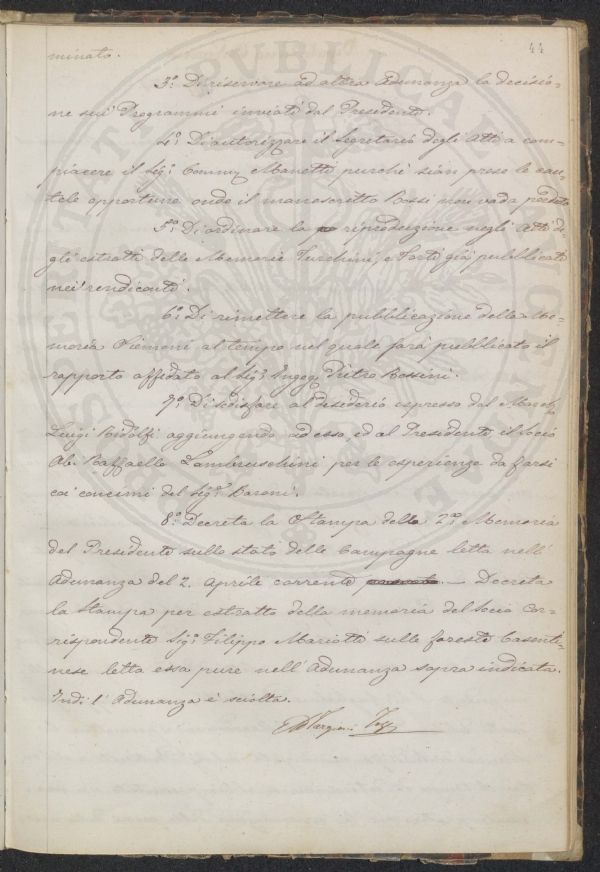 44
minato.
3.° Di riservare ad altra Adunanza la decisio-
ne sui Programmi inviati dal Presidente.
4.° Di autorizzare il Segretario degli Atti a com-
piacere il Sig.r Comm.r Manetti purchè sian prese le cau-
tele opportune onde il manoscritto Rossi non vada perduto
5.° Di ordinare la riproduzione negli Atti de-
gli estratti delle Memorie Turchini, e Forti già pubblicati
nei rendiconti.
6.° Di rimettere la pubblicazione della Me-
moria Siemoni al tempo nel quale sarà pubblicato il
rapporto affidato al Sig.r Ingeg. Pietro Rossini.
7.° Di sodisfare al desiderio espresso dal March.
Luigi Ridolfi aggiungendo ad esso, ed al Presidente il Socio
Ab. Raffaello Lambruschini per le esperienze da farsi
coi concimi del Sig.r Baroni.
8.° Decreta la Stampa della 2.a Memoria
del Presidente sullo stato delle Campagne letta nell'
Adunanza del 2. Aprile corrente. — Decreta
la Stampa per estratto della memoria del Socio Cor-
rispondente Sig.r Filippo Mariotti sulle foreste Casenti-
nese letta essa pure nell'Adunanza sopra indicata.
Indi l'Adunanza è sciolta.
Targioni Tozz
SERITATI PVBLICAE AVGENDAE